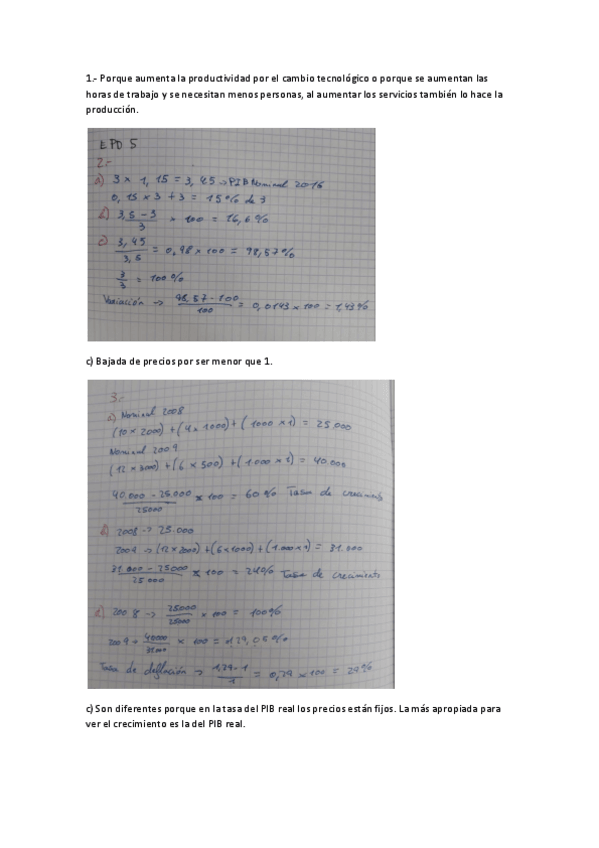 1.- Porque aumenta la productividad por el cambio tecnológico o porque se aumentan las
horas de trabajo y se necesitan menos personas, al aumentar los servicios también lo hace la
producción.
EPD 5
2.-
a) 3 x 1,15 = 3,45 -> PIB Nominal 2016
0,15 x 3 + 3 = 15% de 3
b) 3,5 - 3 / 3 x 100 = 16,6%
c) 3,45 / 3,5 = 0,98 x 100 = 98,57%
3/3 = 100%
Variación -> 98,57 - 100 / 100 = 0,0143 x 100 = 1,43%
c) Bajada de precios por ser menor que 1.
3.-
a) Nominal 2008
(10 x 2000) + (4 x 1000) + (1000 x 1) = 25.000
Nominal 2009
(12 x 3000) + (6 x 500) + (1.000 x 1) = 40.000
40.000 - 25.000 / 25000 x 100 = 60% Tasa de crecimiento
b) 2008 -> 25.000
2009 -> (12 x 2000) + (6 x 1000) + (1.000 x 1) = 31.000
31.000 - 25000 / 25.000 x 100 = 24% Tasa de crecimiento
d) 2008 -> 25000 / 25000 x 100 = 100%
2009 -> 40000 / 31000 x 100 = 129,03%
Tasa de deflación -> 1,29 - 1 / 1 = 0,29 x 100 = 29%
c) Son diferentes porque en la tasa del PIB real los precios están fijos. La más apropiada para
ver el crecimiento es la del PIB real.